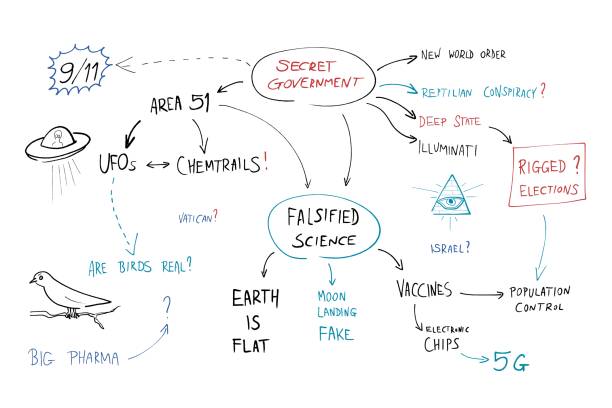 9/11
SECRET
GOVERNMENT
NEW WORLD ORDER
REPTILIAN CONSPIRACY?
DEEP STATE
ILLUMINATI
AREA 51
UFOs
CHEMTRAILS!
RIGGED?
ELECTIONS
VATICAN?
FALSIFIED
SCIENCE
ISRAEL?
ARE BIRDS REAL?
EARTH
IS
FLAT
MOON
LANDING
FAKE
VACCINES
POPULATION
CONTROL
?
ELECTRONIC
CHIPS
5G
BIG PHARMA